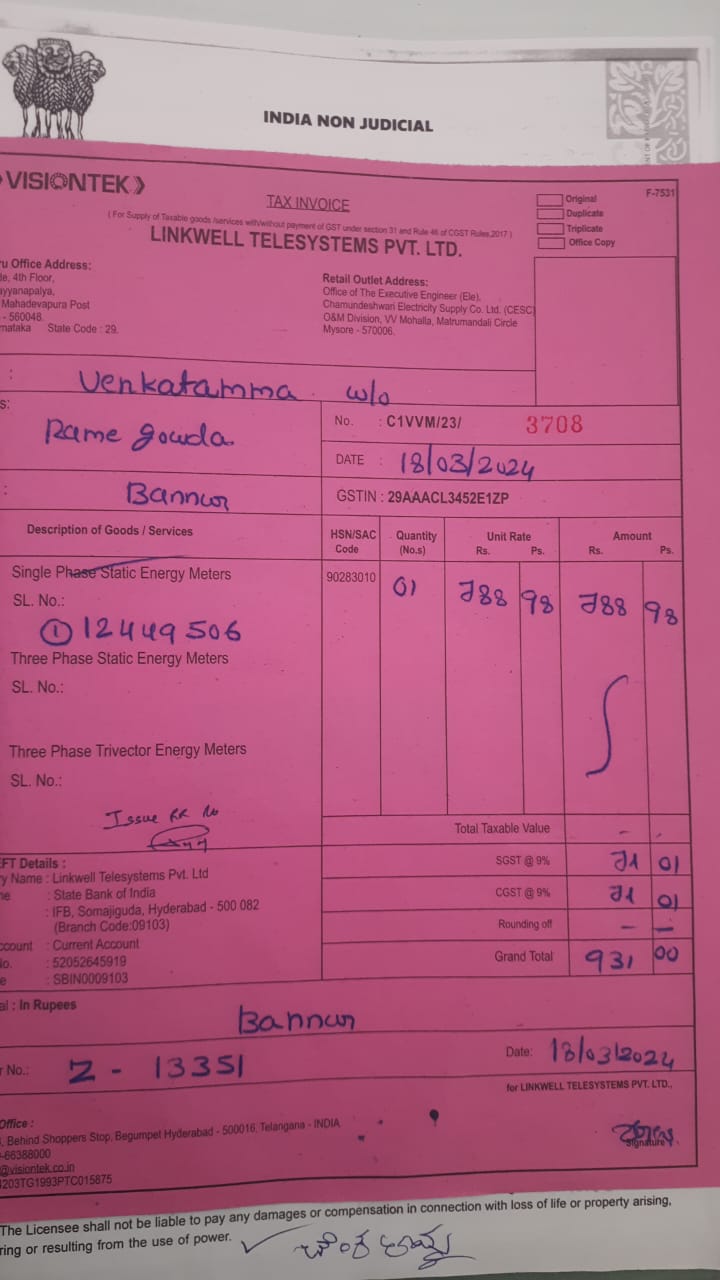 INDIA NON JUDICIAL
VISIONTEK
TAX INVOICE
Original
F-7531
Duplicate
Triplicate
Office Copy
( For Supply of Taxable goods /services with/without payment of GST under section 31 and Rule 46 of CGST Rules,2017 )
LINKWELL TELESYSTEMS PVT. LTD.
ru Office Address:
le, 4th Floor,
ayyanapalya,
Mahadevapura Post
- 560048.
nataka State Code : 29.
Retail Outlet Address:
Office of The Executive Engineer (Ele),
Chamundeshwari Electricity Supply Co. Ltd. (CESC)
O&M Division, VV Mohalla, Matrumandali Circle
Mysore - 570006.
: Venkatamma w/o
s: Rame gowda
: Bannur
No. : C1VVM/23/ 3708
DATE : 18/03/2024
GSTIN : 29AAACL3452E1ZP
Description of Goods / Services HSN/SAC Code Quantity (No.s) Unit Rate Rs. Ps. Amount Rs. Ps.
Single Phase Static Energy Meters 90283010 01 788 98 788 98
SL. No.:
① 12449506
Three Phase Static Energy Meters
SL. No.:
Three Phase Trivector Energy Meters
SL. No.:
Issue RR No
Total Taxable Value - .
SGST @ 9% 71 01
CGST @ 9% 71 01
Rounding off - -
Grand Total 931 00
EFT Details :
ry Name : Linkwell Telesystems Pvt. Ltd
me : State Bank of India
: IFB, Somajiguda, Hyderabad - 500 082
(Branch Code:09103)
ccount : Current Account
No. : 52052645919
e : SBIN0009103
al : In Rupees
Bannur
r No.: Z - 13351
Date: 18/03/2024
for LINKWELL TELESYSTEMS PVT. LTD.,
Signature
Office :
, Behind Shoppers Stop, Begumpet Hyderabad - 500016, Telangana - INDIA
-66388000
@visiontek.co.in
4203TG1993PTC015875
The Licensee shall not be liable to pay any damages or compensation in connection with loss of life or property arising,
ring or resulting from the use of power.